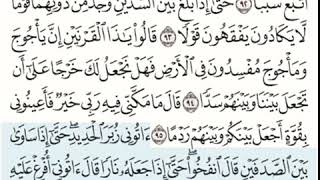 أَتْبَعَ سَبَبًا ٩٢ حَتَّىٰ إِذَا بَلَغَ بَيْنَ السَّدَّيْنِ وَجَدَ مِن دُونِهِمَا قَوْمًا
لَّا يَكَادُونَ يَفْقَهُونَ قَوْلًا ٩٣ قَالُوا يَٰذَا الْقَرْنَيْنِ إِنَّ يَأْجُوجَ
وَمَأْجُوجَ مُفْسِدُونَ فِي الْأَرْضِ فَهَلْ نَجْعَلُ لَكَ خَرْجًا عَلَىٰ أَن
تَجْعَلَ بَيْنَنَا وَبَيْنَهُمْ سَدًّا ٩٤ قَالَ مَا مَكَّنِّي فِيهِ رَبِّي خَيْرٌ فَأَعِينُونِي
بِقُوَّةٍ أَجْعَلْ بَيْنَكُمْ وَبَيْنَهُمْ رَدْمًا ٩٥ ءَاتُونِي زُبَرَ الْحَدِيدِ حَتَّىٰ إِذَا سَاوَىٰ
بَيْنَ الصَّدَفَيْنِ قَالَ انفُخُوا حَتَّىٰ إِذَا جَعَلَهُ نَارًا قَالَ ءَاتُونِي أُفْرِغْ عَلَيْهِ